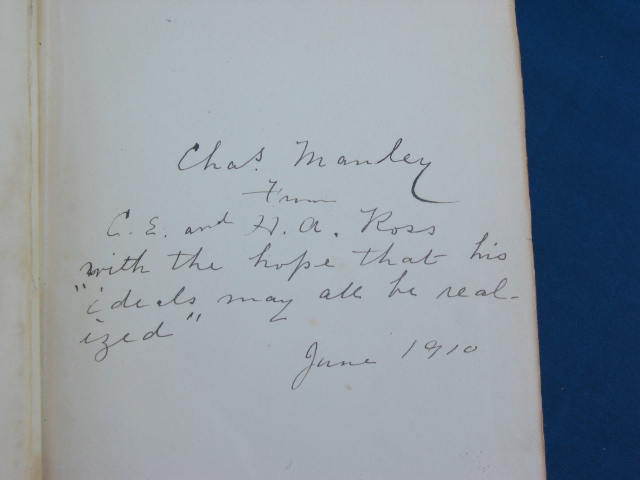 Chas. Manley
From
C. E. and H. A. Ross
with the hope that his
"ideals may all be real-
ized"
June 1910